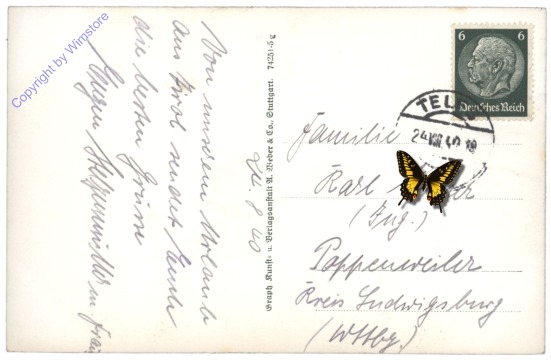 Copyright by Wimstore
Von unserem Urlaube
aus Tirol sendet Euch
die besten Grüsse
Eugen
u. Frau
24. 8. 40
Graph. Kunst- u. Verlagsanstalt A. Weber & Co., Stuttgart. 74251-5 g
6 6
Deutsches Reich
TEL
24 VIII 40 18
Familie
Karl
(Ing.)
Poppenweiler
Kreis Ludwigsburg
(Wttbg.)